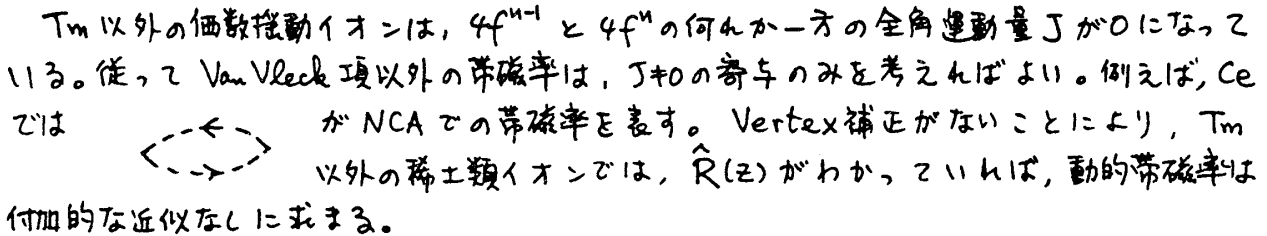 Tm以外の価数揺動イオンは, 4fⁿ⁻¹ と 4fⁿ の何れか一方の全角運動量 J が0になって
いる。従って Van Vleck 項以外の帯磁率は, J≠0の寄与のみを考えればよい。例えば, Ce
では が NCA での帯磁率を表す。 Vertex補正がないことにより, Tm
以外の稀土類イオンでは, R̂(z) がわかっていれば, 動的帯磁率は
付加的な近似なしに求まる。